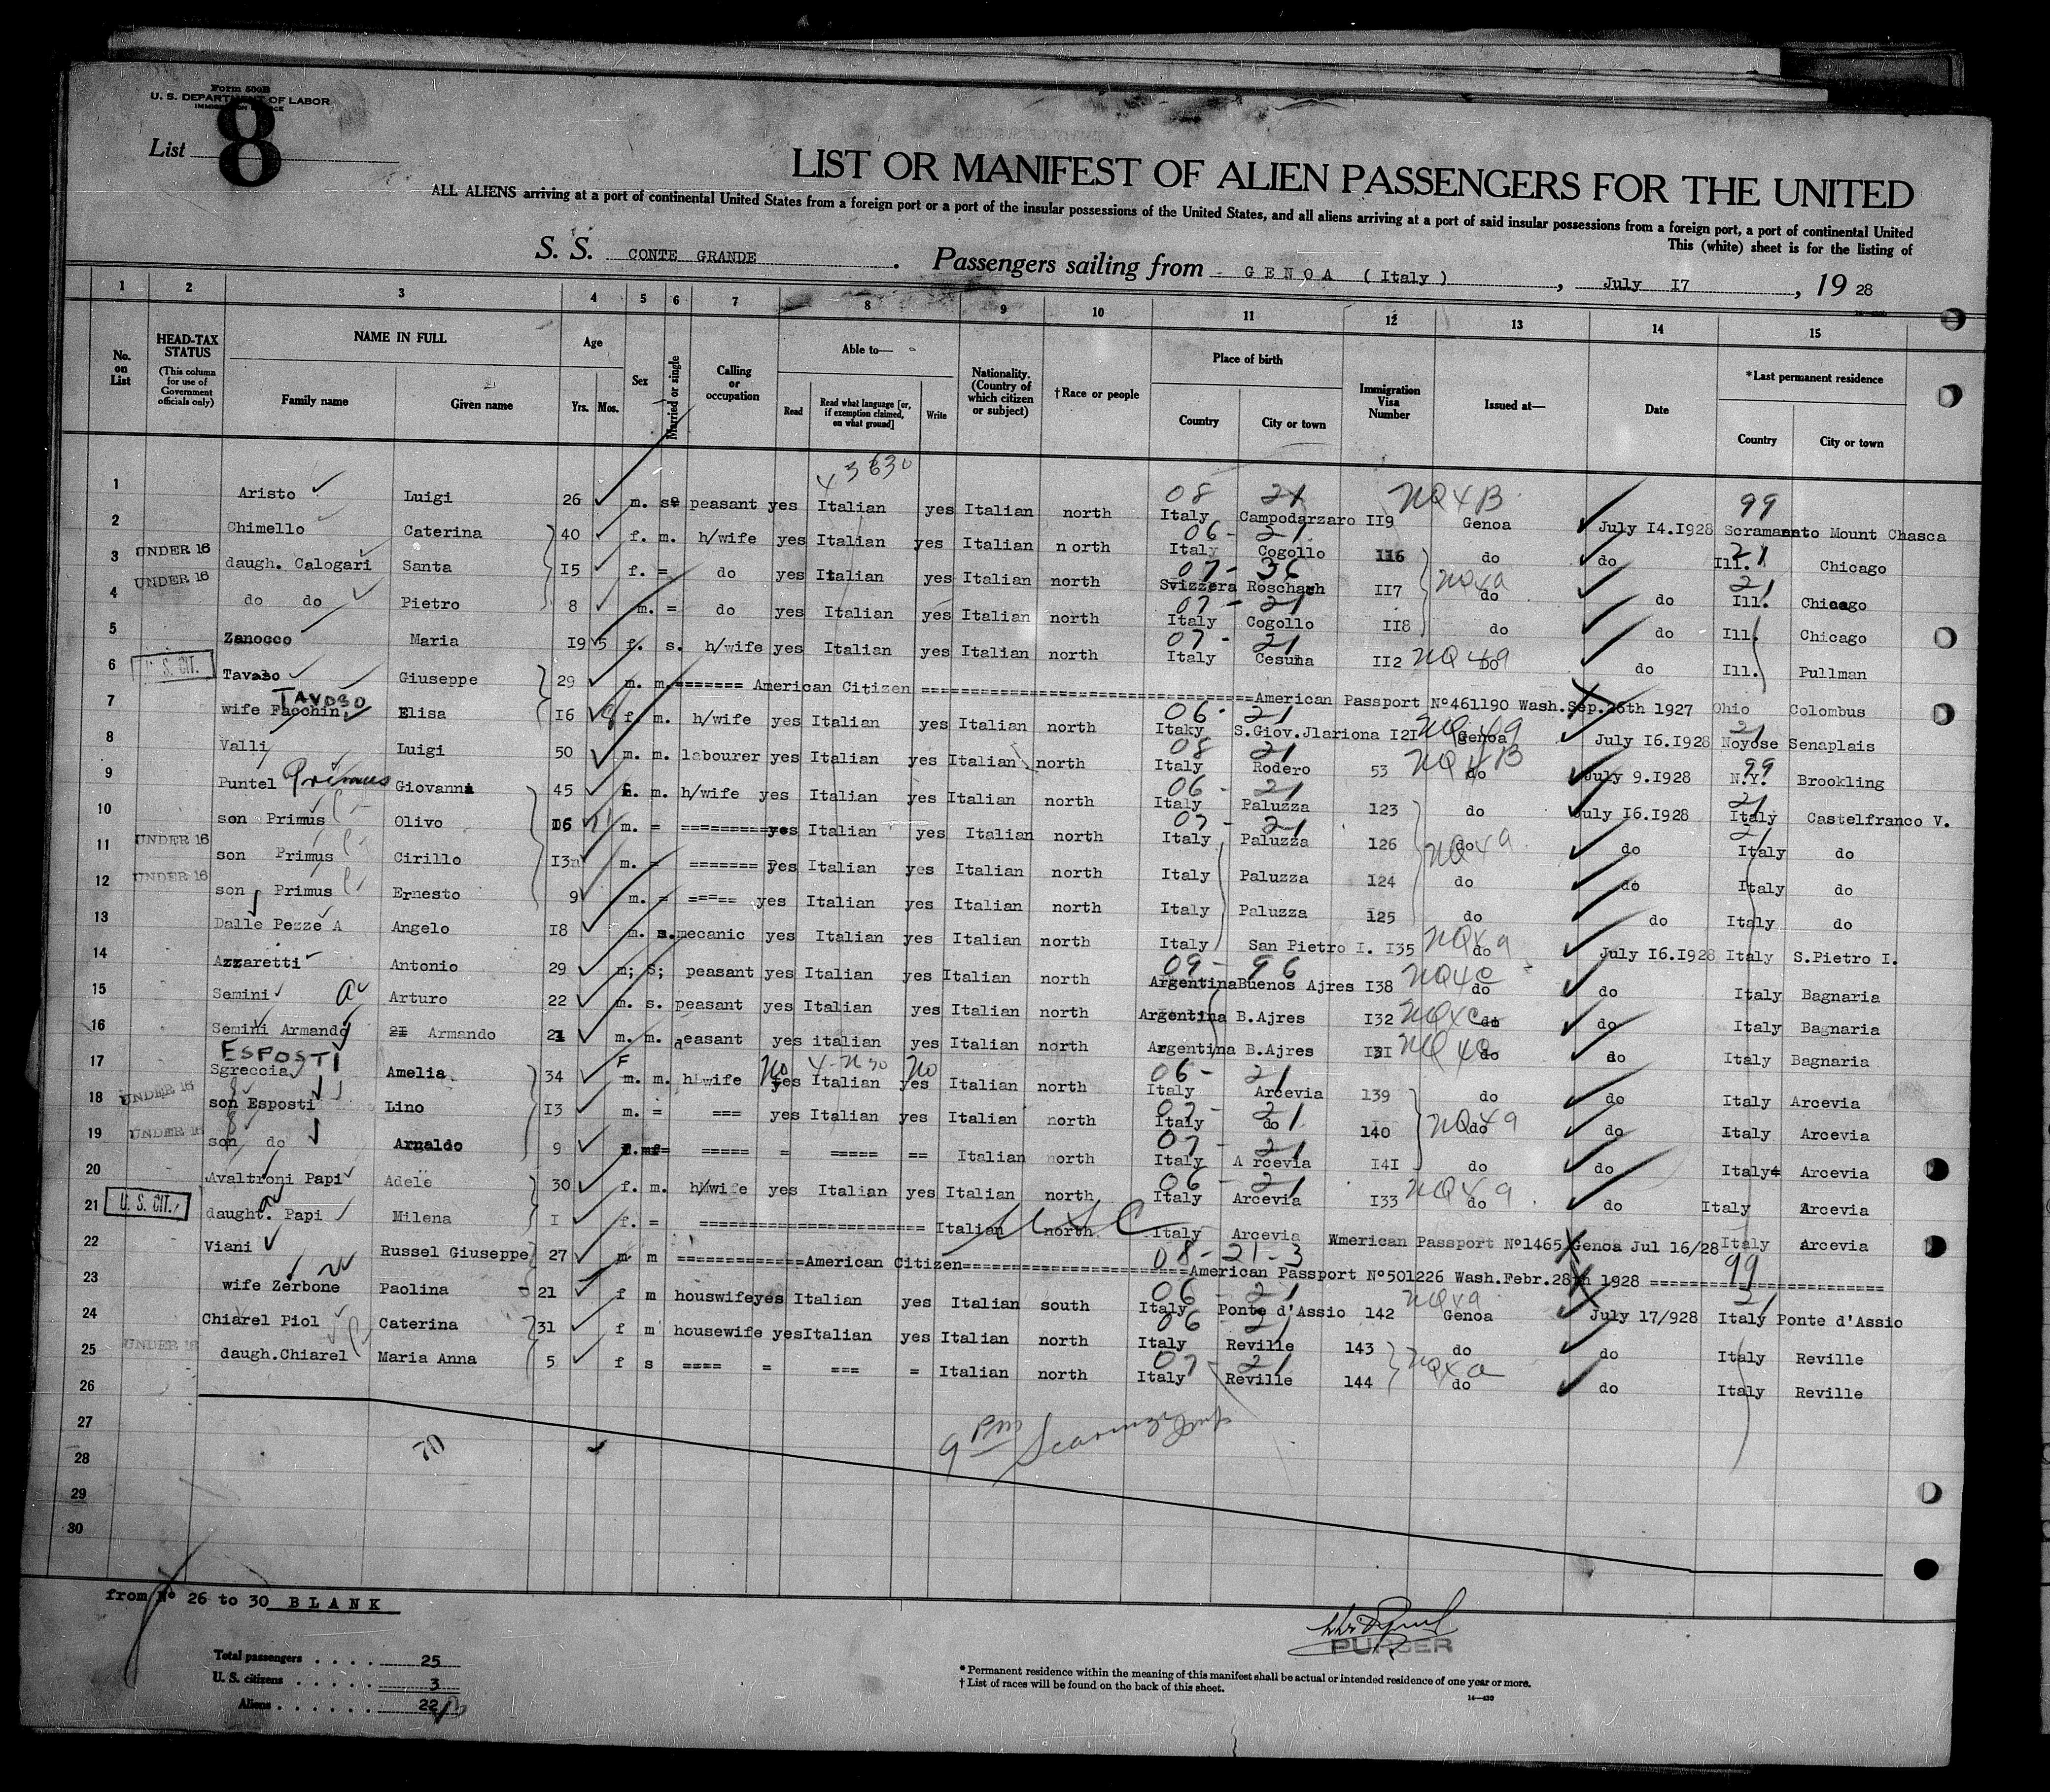 Form 500B
U. S. DEPARTMENT OF LABOR
IMMIGRATION SERVICE
List 8
LIST OR MANIFEST OF ALIEN PASSENGERS FOR THE UNITED
ALL ALIENS arriving at a port of continental United States from a foreign port or a port of the insular possessions of the United States, and all aliens arriving at a port of said insular possessions from a foreign port, a port of continental United
This (white) sheet is for the listing of
S. S. CONTE GRANDE. Passengers sailing from GENOA (Italy), July I7, 19 28
1 2 3 4 5 6 7 8 9 10 11 12 13 14 15
No. on List
HEAD-TAX STATUS (This column for use of Government officials only)
NAME IN FULL Family name Given name
Age Yrs. Mos.
Sex
Married or single
Calling or occupation
Able to— Read Read what language [or, if exemption claimed, on what ground] Write
Nationality. (Country of which citizen or subject)
†Race or people
Place of birth Country City or town
Immigration Visa Number
Issued at—
Date
*Last permanent residence Country City or town
43630
08 21 NQ4B 99
1 Aristo Luigi 26 m. peasant yes Italian yes Italian north Italy Campodarzaro II9 Genoa July I4.I928 Mount Chasca
06 - 21
2 Chimello Caterina 40 f. m. h/wife yes Italian yes Italian north Italy Cogollo 116 do do Ill. Chicago
07 - 36 21
3 UNDER 16 daugh. Calogari Santa I5 f. = do yes Italian yes Italian north Svizzera Roschach II7 do do Ill. Chicago
07 - 21 NQ4a 21
4 UNDER 16 do do Pietro 8 m. = do yes Italian yes Italian north Italy Cogollo II8 do do Ill. Chicago
07 - 21 NQ49
5 Zanocco Maria I9 5 f. s. h/wife yes Italian yes Italian north Italy Cesuna II2 do do Ill. Pullman
6 U. S. CIT. Tavaso Giuseppe 29 m. m. ======= American Citizen ======= American Passport Nº461190 Wash.Sep.26th 1927 Ohio Colombus
TAVOSO 06 - 21 NQ49 21
7 wife Facchin Elisa I6 f. m. h/wife yes Italian yes Italian north Itaky S.Giov.Jlariona I2I Genoa July I6.I928 Noyose Senaplais
08 21 NQ4B 99
8 Valli Luigi 50 m. m. labourer yes Italian yes Italian north Italy Rodero 53 do July 9.I928 N.Y. Brookling
Primus 06 - 21 21
9 Puntel Giovanna 45 f. m. h/wife yes Italian yes Italian north Italy Paluzza 123 do July I6.I928 Italy Castelfranco V.
07 - 21
10 son Primus Olivo I6 m. = ========= yes Italian yes Italian north Italy Paluzza 126 do do Italy do
NQ49
11 UNDER 16 son Primus Cirillo I3 m. = ======= yes Italian yes Italian north Italy Paluzza 124 do do Italy do
12 UNDER 16 son Primus Ernesto 9 m. = ===== yes Italian yes Italian north Italy Paluzza 125 do do Italy do
13 Dalle Pezze A Angelo I8 m. s. mecanic yes Italian yes Italian north Italy San Pietro I. I35 do July I6.I928 Italy S.Pietro I.
09 - 96 NQ4c
14 Azzaretti Antonio 29 m; S; peasant yes Italian yes Italian north Argentina Buenos Ajres I38 do do Italy Bagnaria
15 Semini Arturo 22 m. s. peasant yes Italian yes Italian north Argentina B.Ajres I32 do do Italy Bagnaria
16 Semini Armando Armando 21 m. m. peasant yes italian yes Italian north Argentina B.Ajres I3I do do Italy Bagnaria
ESPOSTI F No No 06 - 21
17 Sgreccia Amelia 34 m. m. h wife yes Italian yes Italian north Italy Arcevia 139 do do Italy Arcevia
07 - 21
18 UNDER 16 son Esposti Lino I3 m. = === yes Italian yes Italian north Italy do 140 do do Italy Arcevia
07 - 21 NQ49
19 UNDER 16 son do Arnaldo 9 ===== = ===== == Italian north Italy Arcevia I4I do do Italy Arcevia
06 - 21 NQ49
20 Avaltroni Papi Adele 30 f. m. h/wife yes Italian yes Italian north Italy Arcevia I33 do do Italy Arcevia
21 U. S. CIT. daught. Papi Milena I f. = ======= Italian north USC Italy Arcevia American Passport Nº1465 Genoa Jul 16/28 Italy Arcevia
08-21-3 99
22 Viani Russel Giuseppe 27 m m ======= American Citizen ======= American Passport Nº501226 Wash.Febr.28th 1928 =======
06 - 21 NQ49 21
23 wife Zerbone Paolina 21 f m houswife yes Italian yes Italian south Italy Ponte d'Assio 142 Genoa July 17/928 Italy Ponte d'Assio
06 21
24 Chiarel Piol Caterina 31 f m housewife yes Italian yes Italian north Italy Reville 143 do do Italy Reville
07 - 21 NQ4a
25 UNDER 16 daugh.Chiarel Maria Anna 5 f s ==== = === = Italian north Italy Reville 144 do do Italy Reville
26
27
28
29
30
70
9 PM
from Nº 26 to 30 BLANK
Total passengers . . . . 25
U. S. citizens . . . . . 3
Aliens . . . . . . 22
PURSER
* Permanent residence within the meaning of this manifest shall be actual or intended residence of one year or more.
† List of races will be found on the back of this sheet.
14—430